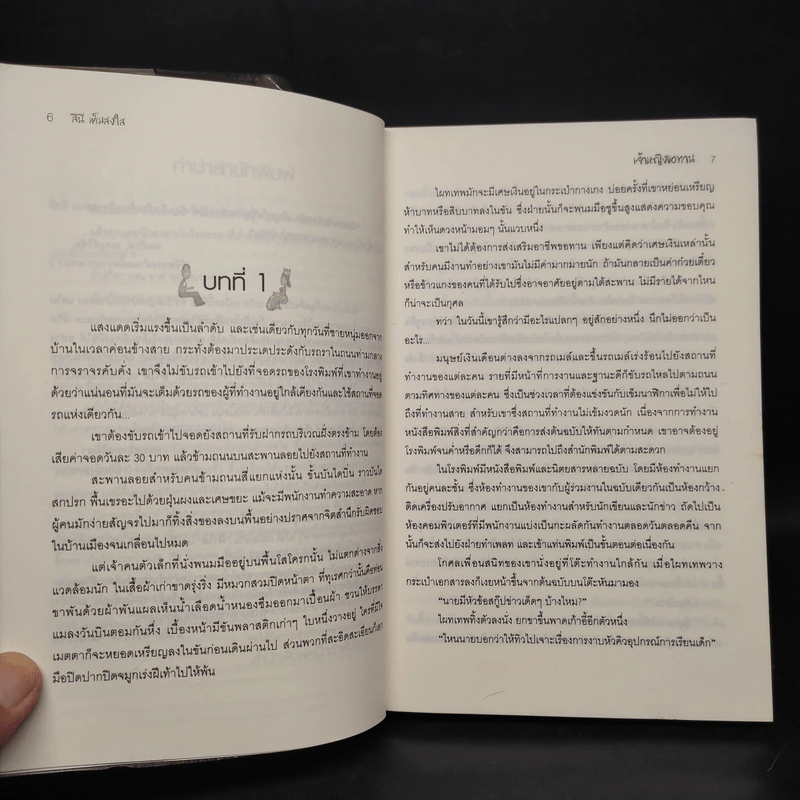 6 สินี เต็มสงสัย
บทที่ 1
แสงแดดเริ่มแรงขึ้นเป็นลำดับ และเช่นเดียวกับทุกวันที่ชายหนุ่มออกจาก
บ้านในเวลาค่อนข้างสาย กระทั่งต้องมาประเดประดังกับรถราในถนนท่ามกลาง
การจราจรคับคั่ง เขาจึงไม่ขับรถเข้าไปยังที่จอดรถของโรงพิมพ์ที่เขาทำงานอยู่
ด้วยว่าแน่นอนที่มันจะเต็มด้วยรถของผู้ที่ทำงานอยู่ใกล้เคียงกันและใช้สถานที่จอด
รถแห่งเดียวกัน...
เขาต้องขับรถเข้าไปจอดยังสถานที่รับฝากรถบริเวณฝั่งตรงข้าม โดยต้อง
เสียค่าจอดวันละ 30 บาท แล้วข้ามถนนบนสะพานลอยไปยังสถานที่ทำงาน
สะพานลอยสำหรับคนข้ามถนนสี่แยกแห่งนั้น ขั้นบันไดบิ่น ราวบันได
สกปรก พื้นเขรอะไปด้วยฝุ่นผงและเศษขยะ แม้จะมีพนักงานทำความสะอาด หาก
ผู้คนมักง่ายสัญจรไปมาก็ทิ้งสิ่งของลงบนพื้นอย่างปราศจากจิตสำนึกรับผิดชอบ
ในบ้านเมืองจนเกลื่อนไปหมด
แต่เจ้าคนตัวเล็กที่นั่งพนมมืออยู่บนพื้นโสโครกนั้น ไม่แตกต่างจากสิ่ง
แวดล้อมนัก ในเสื้อผ้าเก่าขาดรุ่งริ่ง มีหมวกสวมปิดหน้าตา ที่ทุเรศกว่านั้นคือท่อน
ขาพันด้วยผ้าพันแผลเห็นน้ำเลือดน้ำหนองซึมออกมาเปื้อนผ้า ชวนให้บรรดา
แมลงวันบินตอมกันหึ่ง เบื้องหน้ามีขันพลาสติกเก่าๆ ใบหนึ่งวางอยู่ ใครที่มี
เมตตาก็จะหยอดเหรียญลงในขันก่อนเดินผ่านไป ส่วนพวกที่สะอิดสะเอียนก็เอา
มือปิดปากปิดจมูกเร่งฝีเท้าไปให้พ้น
เจ้าหญิงขอทาน 7
ไผทเทพมักจะมีเศษเงินอยู่ในกระเป๋ากางเกง บ่อยครั้งที่เขาหย่อนเหรียญ
ห้าบาทหรือสิบบาทลงในขัน ซึ่งฝ่ายนั้นก็จะพนมมือชูขึ้นสูงแสดงความขอบคุณ
ทำให้เห็นดวงหน้ามอมๆ นั้นแวบหนึ่ง
เขาไม่ได้ต้องการส่งเสริมอาชีพขอทาน เพียงแต่คิดว่าเศษเงินเหล่านั้น
สำหรับคนมีงานทำอย่างเขามันไม่มีค่ามากมายนัก ถ้ามันกลายเป็นค่าก๋วยเตี๋ยว
หรือข้าวแกงของคนที่ได้รับไปซึ่งอาจอาศัยอยู่ตามใต้สะพาน ไม่มีรายได้จากไหน
ก็น่าจะเป็นกุศล
ทว่า ในวันนี้เขารู้สึกว่ามีอะไรแปลกๆ อยู่สักอย่างหนึ่ง นึกไม่ออกว่าเป็น
อะไร...
มนุษย์เงินเดือนต่างลงจากรถเมล์และขึ้นรถเมล์เร่งร้อนไปยังสถานที่
ทำงานของแต่ละคน รายที่มีหน้าที่การงานและฐานะดีก็ขับรถไหลไปตามถนน
ตามทิศทางของแต่ละคน ซึ่งเป็นช่วงเวลาที่ต้องแข่งขันกับเข็มนาฬิกาเพื่อไม่ให้ไป
ถึงที่ทำงานสาย สำหรับเขาซึ่งสถานที่ทำงานไม่เข้มงวดนัก เนื่องจากการทำงาน
หนังสือพิมพ์สิ่งที่สำคัญกว่าคือการส่งต้นฉบับให้ทันตามกำหนด เขาอาจต้องอยู่
โรงพิมพ์จนค่ำหรือดึกก็ได้ จึงสามารถไปถึงสำนักพิมพ์ได้ตามสะดวก
ในโรงพิมพ์มีหนังสือพิมพ์และนิตยสารหลายฉบับ โดยมีห้องทำงานแยก
กันอยู่คนละชั้น ซึ่งห้องทำงานของเขากับผู้ร่วมงานในฉบับเดียวกันเป็นห้องกว้าง
ติดเครื่องปรับอากาศ แยกเป็นห้องทำงานสำหรับนักเขียนและนักข่าว ถัดไปเป็น
ห้องคอมพิวเตอร์ที่มีพนักงานแบ่งเป็นกะผลัดกันทำงานตลอดวันตลอดคืน จาก
นั้นก็จะส่งไปยังฝ่ายทำเพลท และเข้าแท่นพิมพ์เป็นขั้นตอนต่อเนื่องกัน
โกศลเพื่อนสนิทของเขานั่งอยู่ที่โต๊ะทำงานใกล้กัน เมื่อไผทเทพวาง
กระเป๋าเอกสารลงก็เงยหน้าขึ้นจากต้นฉบับบนโต๊ะหันมามอง
“นายมีหัวข้อสกู๊ปข่าวเด็ดๆ บ้างไหม?”
ไผทเทพทิ้งตัวลงนั่ง ยกขาขึ้นพาดเก้าอี้อีกตัวหนึ่ง
“ไหนนายบอกว่าให้ทิวไปเจาะเรื่องการงาบหัวคิวอุปกรณ์การเรียนเด็ก”